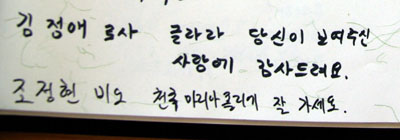 김 정애 로사 글라라 당신이 보여주신
사랑에 감사드려요.
조정현 비오 천국 잘 가세요.